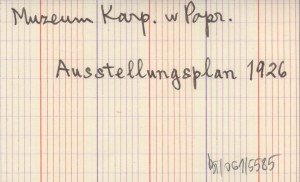 Muzeum Karp. w Popr.
Ausstellungsplan 1926
/061/5585